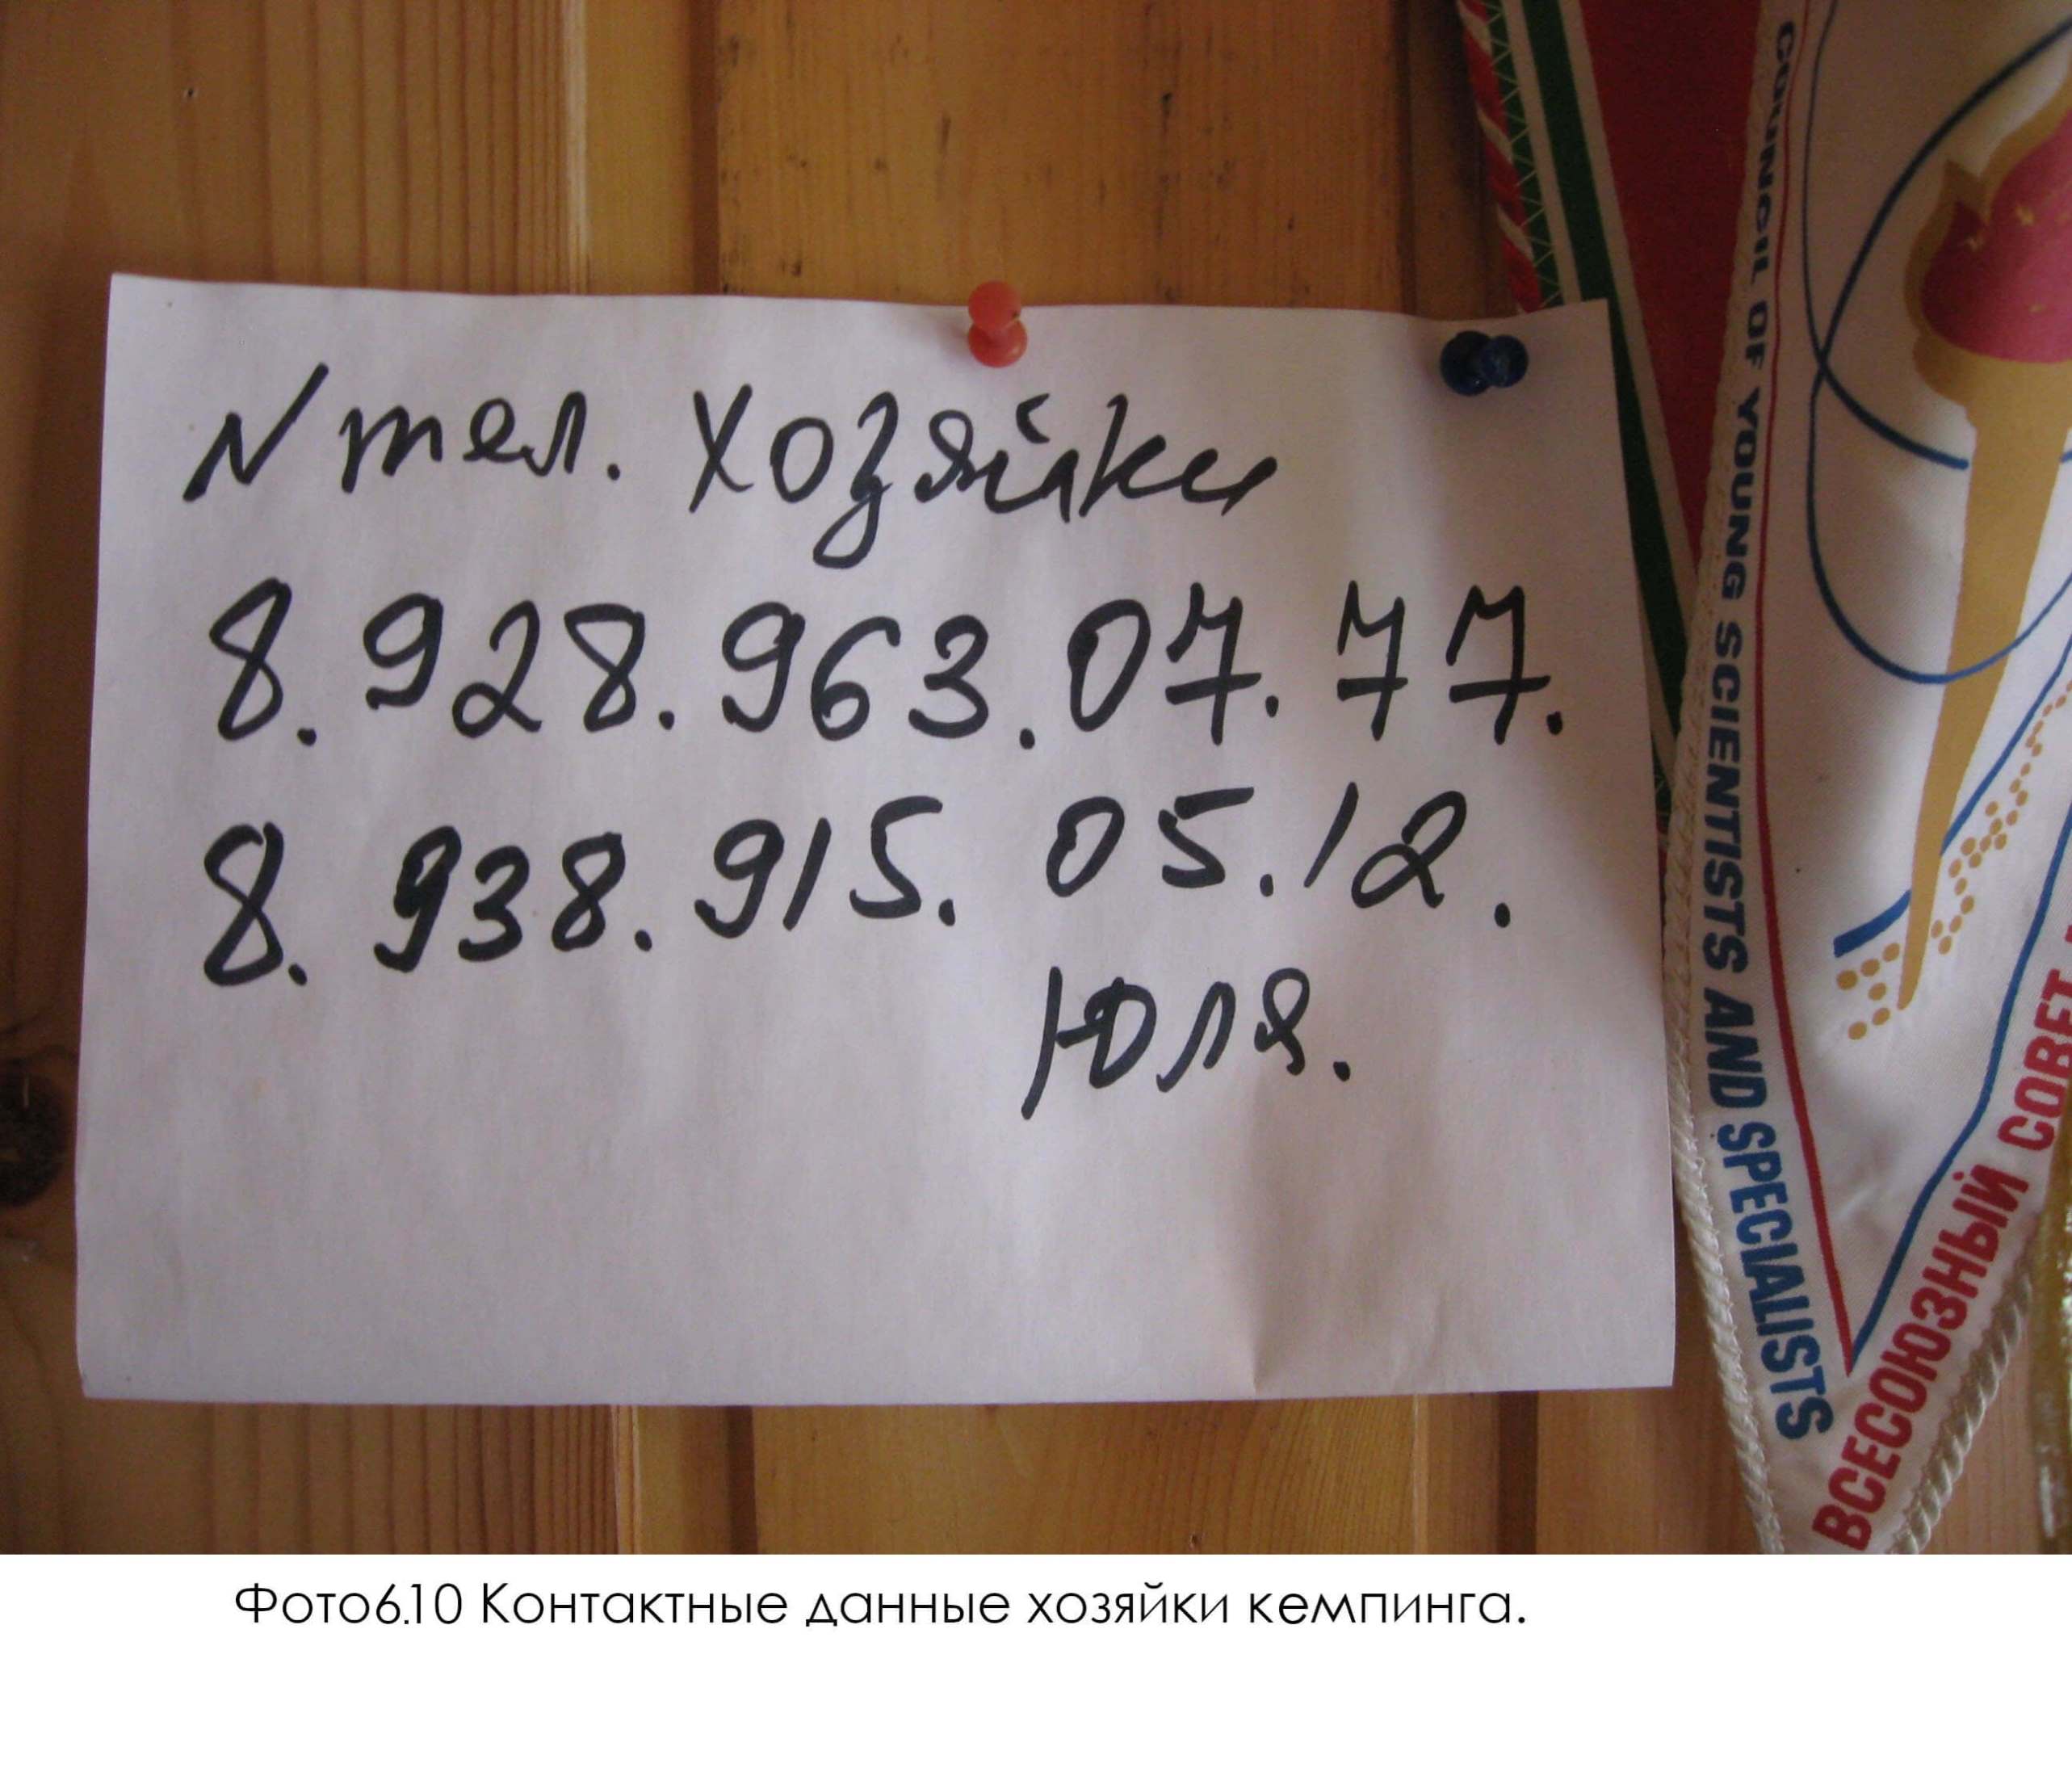 N тел. хозяйки
8.928.963.07.77.
8.938.915.05.12.
Юля.
COUNCIL OF YOUNG SCIENTISTS AND SPECIALISTS
ВСЕСОЮЗНЫЙ СОВЕТ
Фото6.10 Контактные данные хозяйки кемпинга.